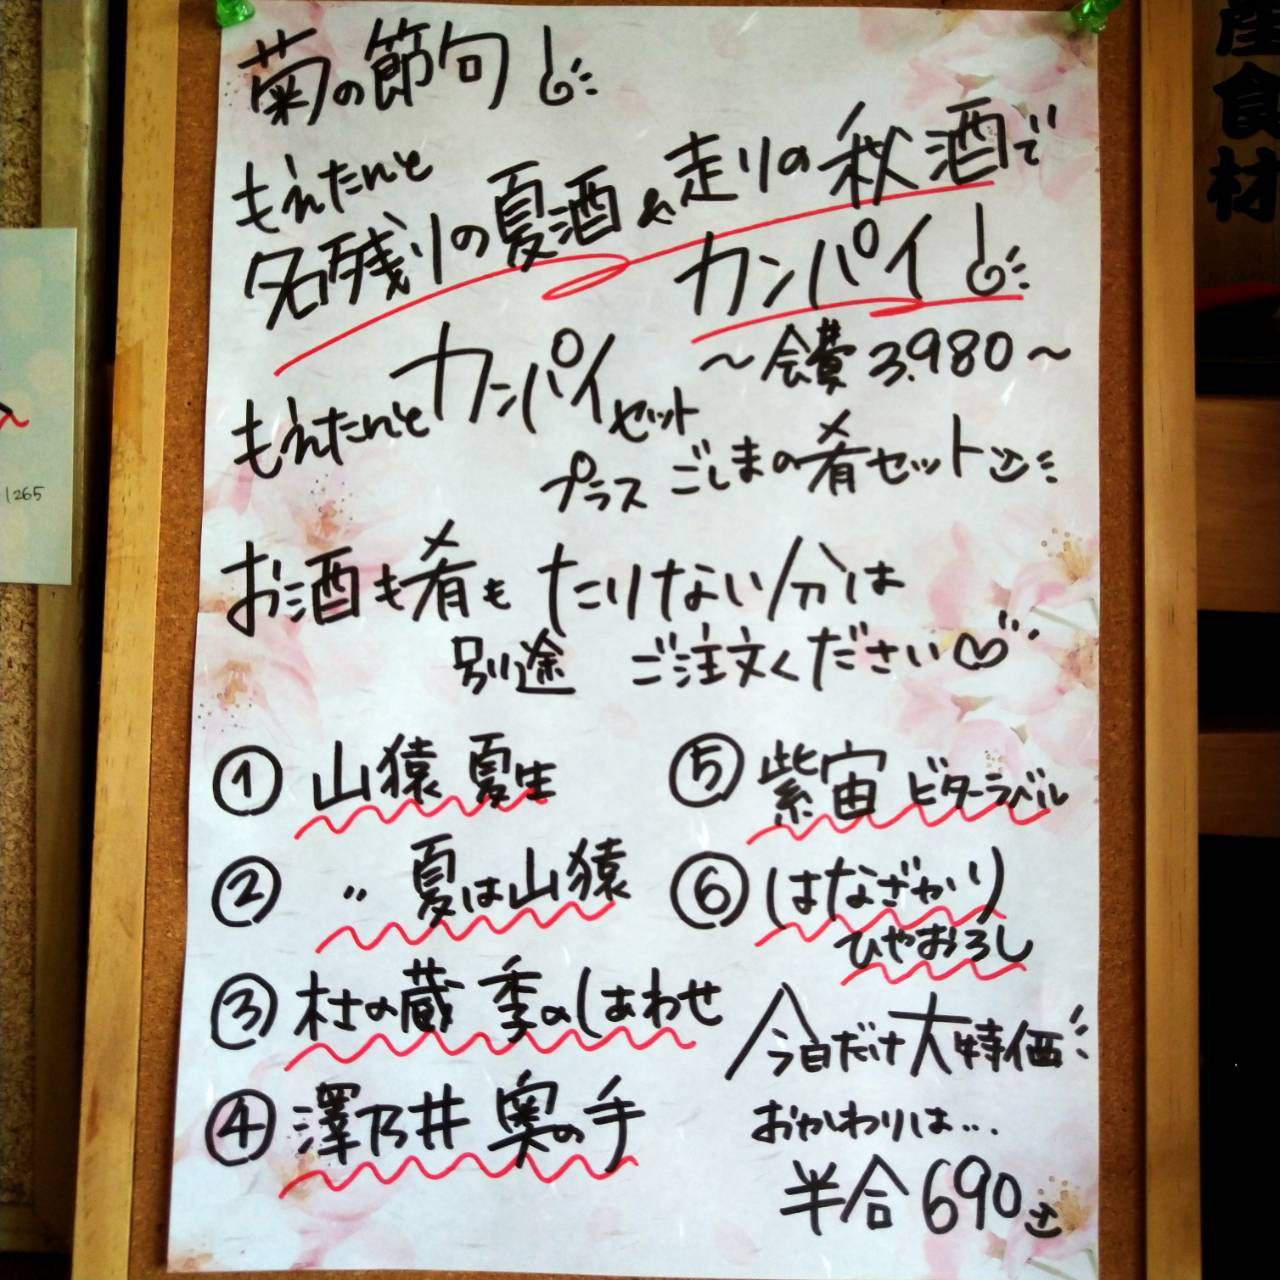 菊の節句
もえたんと
名残りの夏酒&走りの秋酒で
カンパイ
〜会費3.980〜
もえたんとカンパイセット
プラスごしまの肴セット
お酒も肴もたりない分は
別途 ご注文ください♡
① 山猿 夏生
② 〃 夏は山猿
③ 杜の蔵 季のしあわせ
④ 澤乃井 奥の手
⑤ 紫宙 ビターラベル
⑥ はなざかり
ひやおろし
今日だけ大特価
おかわりは…
半合690
産食材
1265